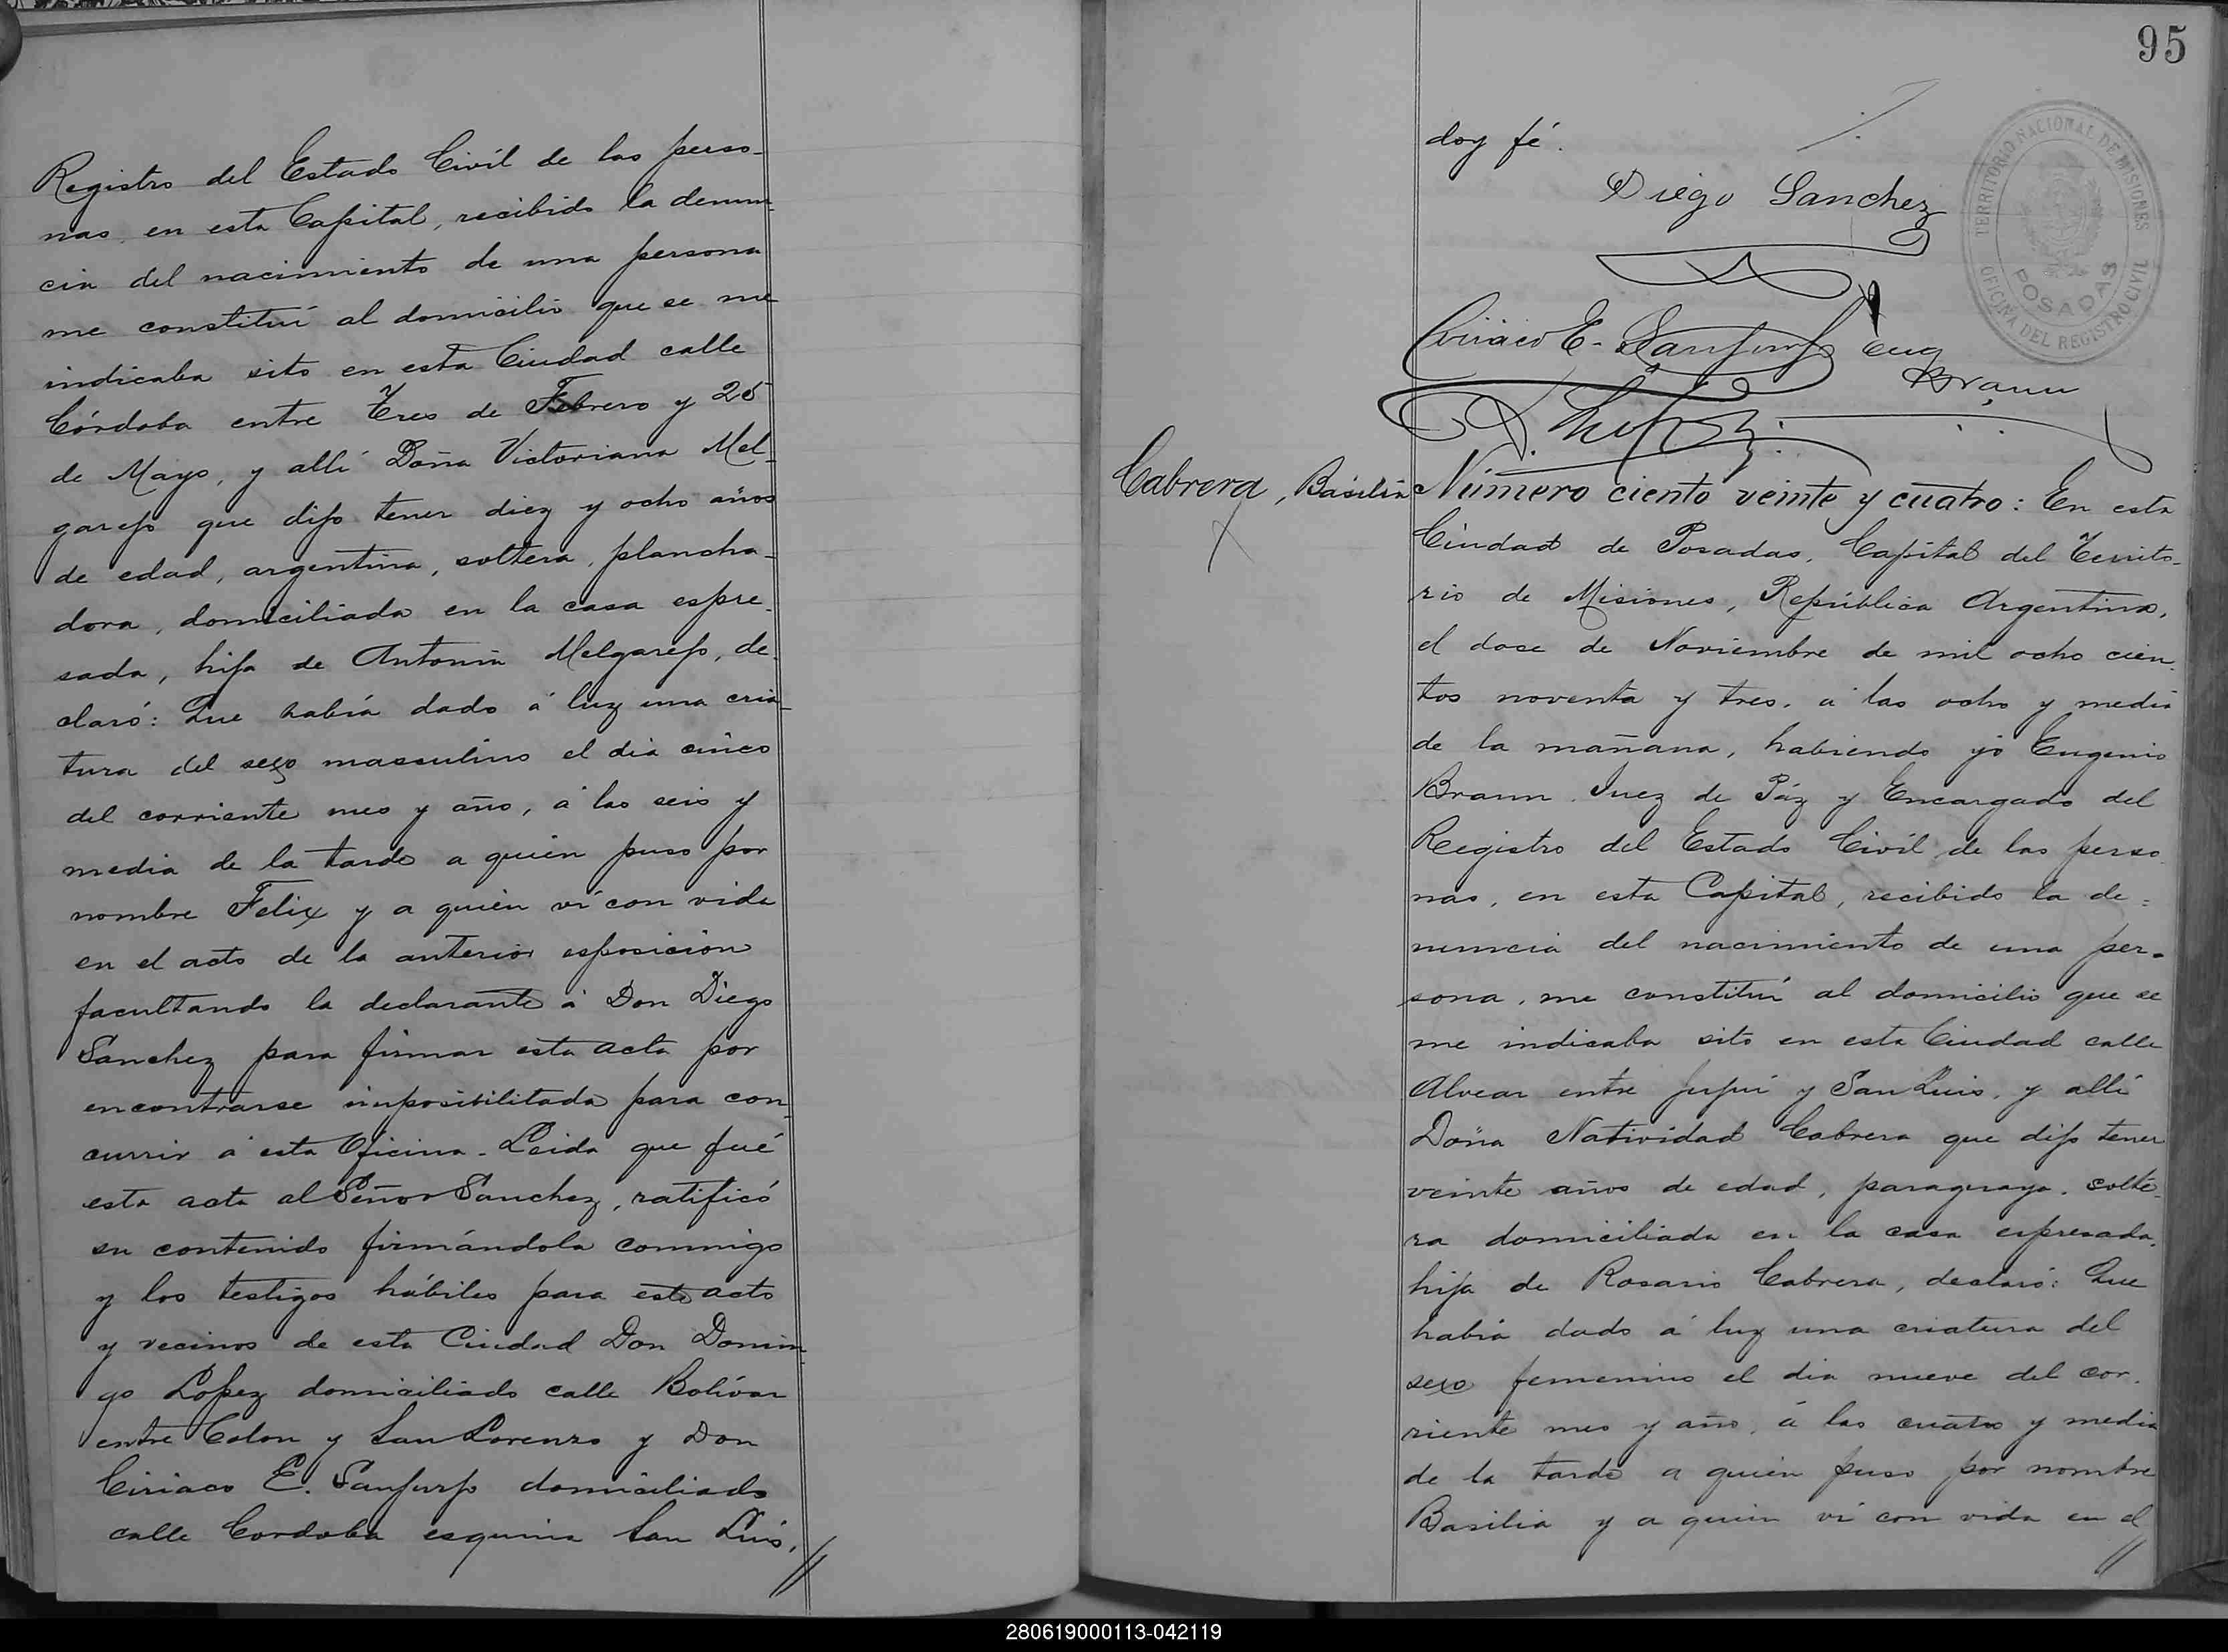 Registro del Estado Civil de las perso-
nas, en esta Capital, recibido la denun-
cia del nacimiento de una persona
me constituí al domicilio que se me
indicaba sito en esta Ciudad calle
Córdoba entre Tres de Febrero y 25
de Mayo, y allí Doña Victoriana Mel-
garejo que dijo tener diez y ocho años
de edad, argentina, soltera, plancha-
dora, domiciliada en la casa espre-
sada, hija de Antonia Melgarejo, de-
claró: Que había dado á luz una cria-
tura del sexo masculino el dia cinco
del corriente mes y año, á las seis y
media de la tarde a quien puso por
nombre Felix y a quien ví con vida
en el acto de la anterior esposicion
facultando la declarante á Don Diego
Sanchez para firmar esta acta por
encontrarse imposibilitada para con-
currir á esta Oficina. Leida que fué
esta acta al Señor Sanchez, ratificó
su contenido firmándola conmigo
y los testigos hábiles para este acto
y vecinos de esta Ciudad Don Domin-
go Lopez domiciliado calle Bolívar
entre Colon y San Lorenzo y Don
Ciriaco E. Sanjurjo domiciliado
calle Cordoba esquina San Luis,
//
95
doy fé.
Diego Sanchez
TERRITORIO NACIONAL DE MISIONES
OFICINA DEL REGISTRO CIVIL
POSADAS
Ciriaco E. Sanjurjo
Eug
Braun
Cabrera, Basilia
Número ciento veinte y cuatro: En esta
Ciudad de Posadas, Capital del Territo-
rio de Misiones, República Argentina,
el doce de Noviembre de mil ocho cien-
tos noventa y tres, á las ocho y media
de la mañana, habiendo yo Eugenio
Braun Juez de Páz y Encargado del
Registro del Estado Civil de las perso
nas, en esta Capital, recibido la de=
nuncia del nacimiento de una per-
sona, me constituí al domicilio que se
me indicaba sito en esta Ciudad calle
Alvear entre Jujui y San Luis, y allí
Doña Natividad Cabrera que dijo tener
veinte años de edad, paraguaya, solte-
ra domiciliada en la casa espresada,
hija de Rosario Cabrera, declaró: Que
había dado á luz una criatura del
sexo femenino el dia nueve del cor-
riente mes y año, á las cuatro y media
de la tarde a quien puso por nombre
Basilia y a quien ví con vida en el
//
280619000113-042119